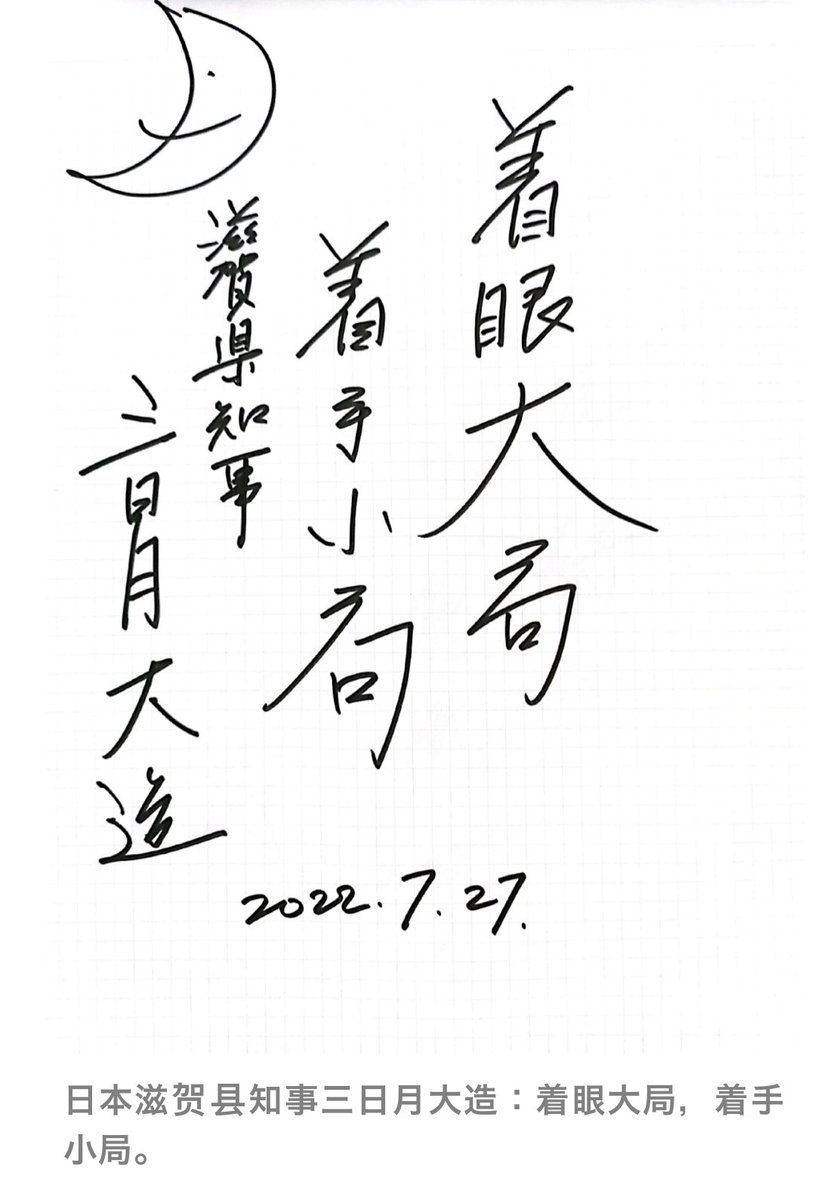 着眼大局
着手小局
滋賀県知事
三日月大造
2022.7.27.
日本滋贺县知事三日月大造：着眼大局，着手
小局。